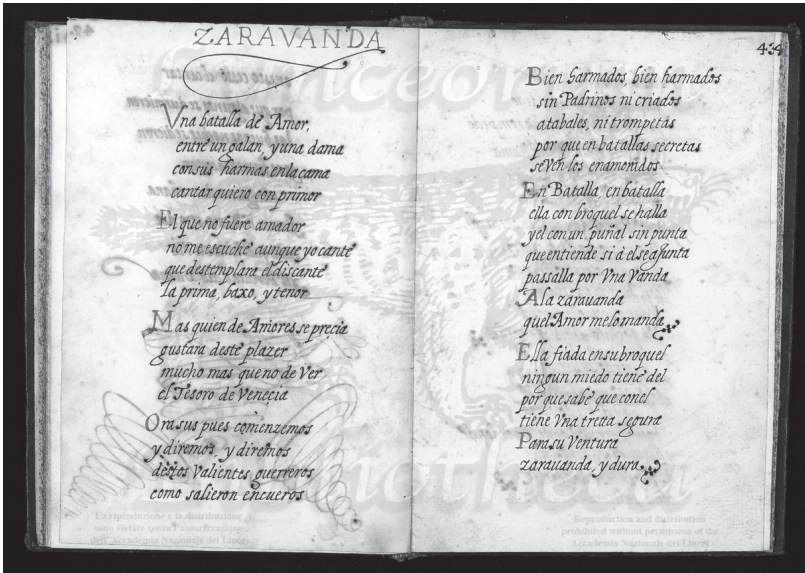 ZARAVANDA
Vna batalla de Amor,
entre un galan, y una dama
con sus harmas en la cama
cantar quiero con primor
El que no fuere amador
no me escuche aunque yo cante
que destemplara el discante
la prima, baxo, y tenor
Mas quien de Amores se precia
gustara deste plazer
mucho mas que no de Ver
el Tesoro de Veneçia
Ora sus pues comenzemos
y diremos, y diremos
destos Valientes guerreros
como salieron encueros
434
Bien harmados, bien harmados
sin Padrinos ni criados
atabales, ni trompetas
por que en batallas secretas
se Ven los enamorados
En Batalla, en batalla
ella con broquel se halla
y el con un puñal sin punta
que entiende si à el se ajunta
passalla por Vna Vanda
A la zarauanda
quel Amor me lo manda
Ella fiada en su broquel
ningun miedo tiene del
por que sabe que con el
tiene Vna treta segura
Para su Ventura
zarauanda, y dura
La riproduzione e la distribuzione
sono vietate senza l'autorizzazione
dell'Accademia Nazionale dei Lincei
Reproduction and distribution
prohibited without permission of the
Accademia Nazionale dei Lincei